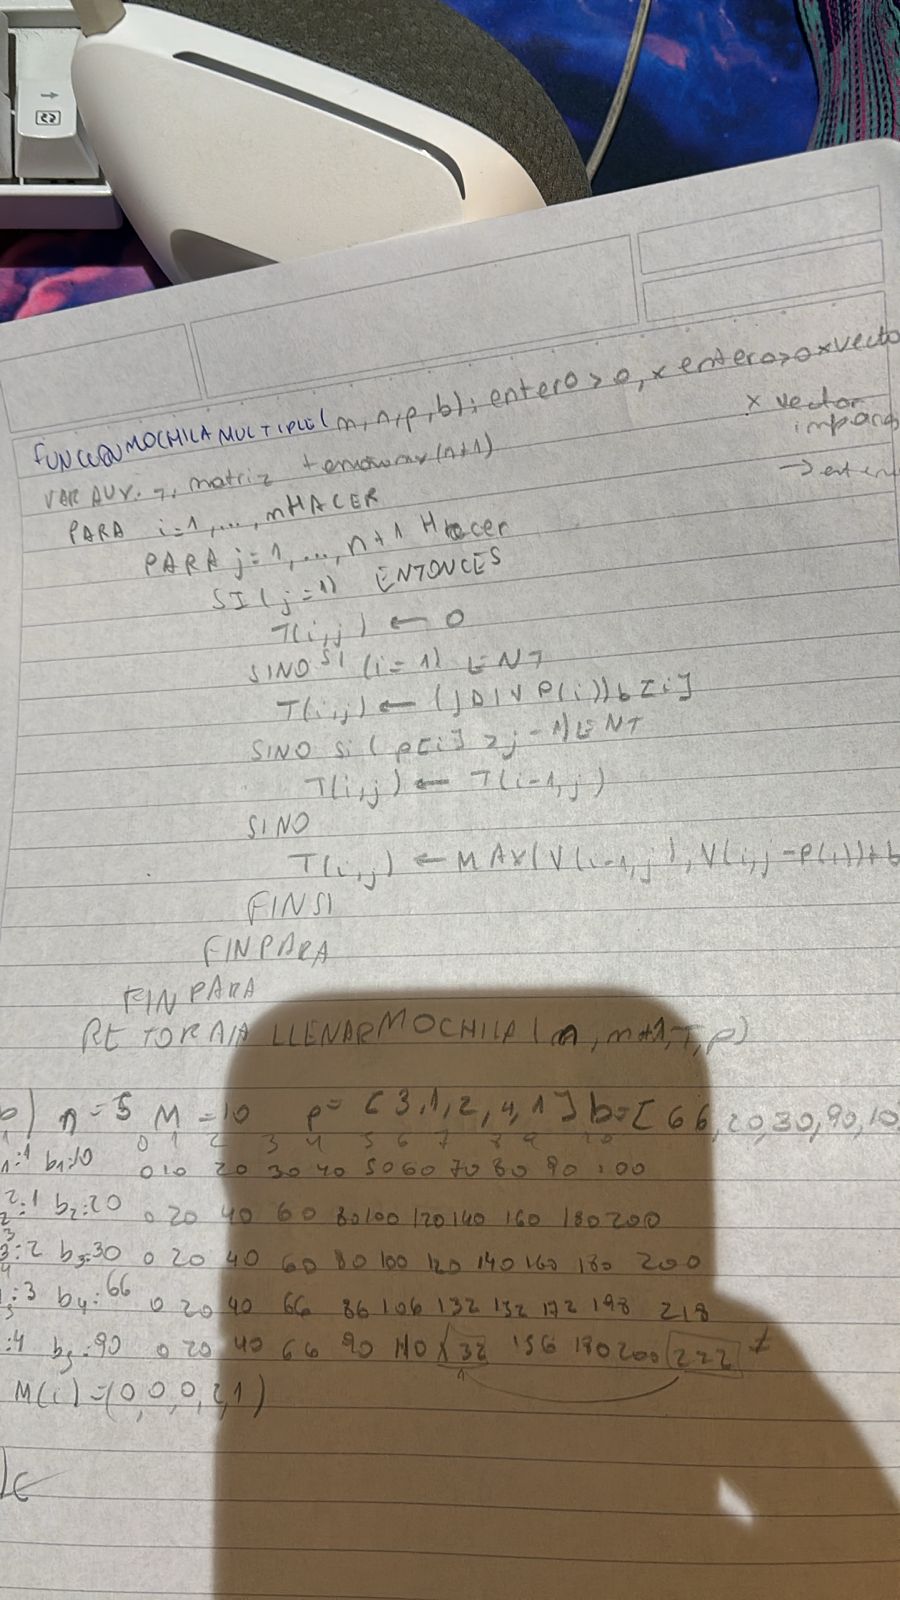 FUNCION MOCHILA MULTIPLE(m,n,p,b): entero>0,x entero>0xvecto
x vector
VAR AUX. matriz
PARA i=1,...,nHACER
PARA j=1,...,n+1 Hacer
SI(j=1) ENTONCES
T(i,j) ← 0
SINO SI (i=1) ENT
T(i,j) ← (jDIV P(i))b[i]
SINO Si (p[i] > j-1)ENT
T(i,j) ← T(i-1,j)
SINO
T(i,j) ← MAX(V(i-1,j), V(i,j-p(i))+b
FINSI
FINPARA
FINPARA
RETORNA LLENARMOCHILA(n,m+1,T,p)
b) n=5 M=10 p=[3,1,2,4,1] b=[66,20,30,90,10
0 1 2 3 4 5 6 7 8 9 10
:1 b1:10 0 10 20 30 40 50 60 70 80 90 100
2:1 b2:20 0 20 40 60 80 100 120 140 160 180 200
3:2 b3:30 0 20 40 60 80 100 120 140 160 180 200
:3 b4:66 0 20 40 66 86 106 132 152 172 198 218
:4 b5:90 0 20 40 66 90 110 132 156 180 200 222
M(i)=(0,0,0,2,1)